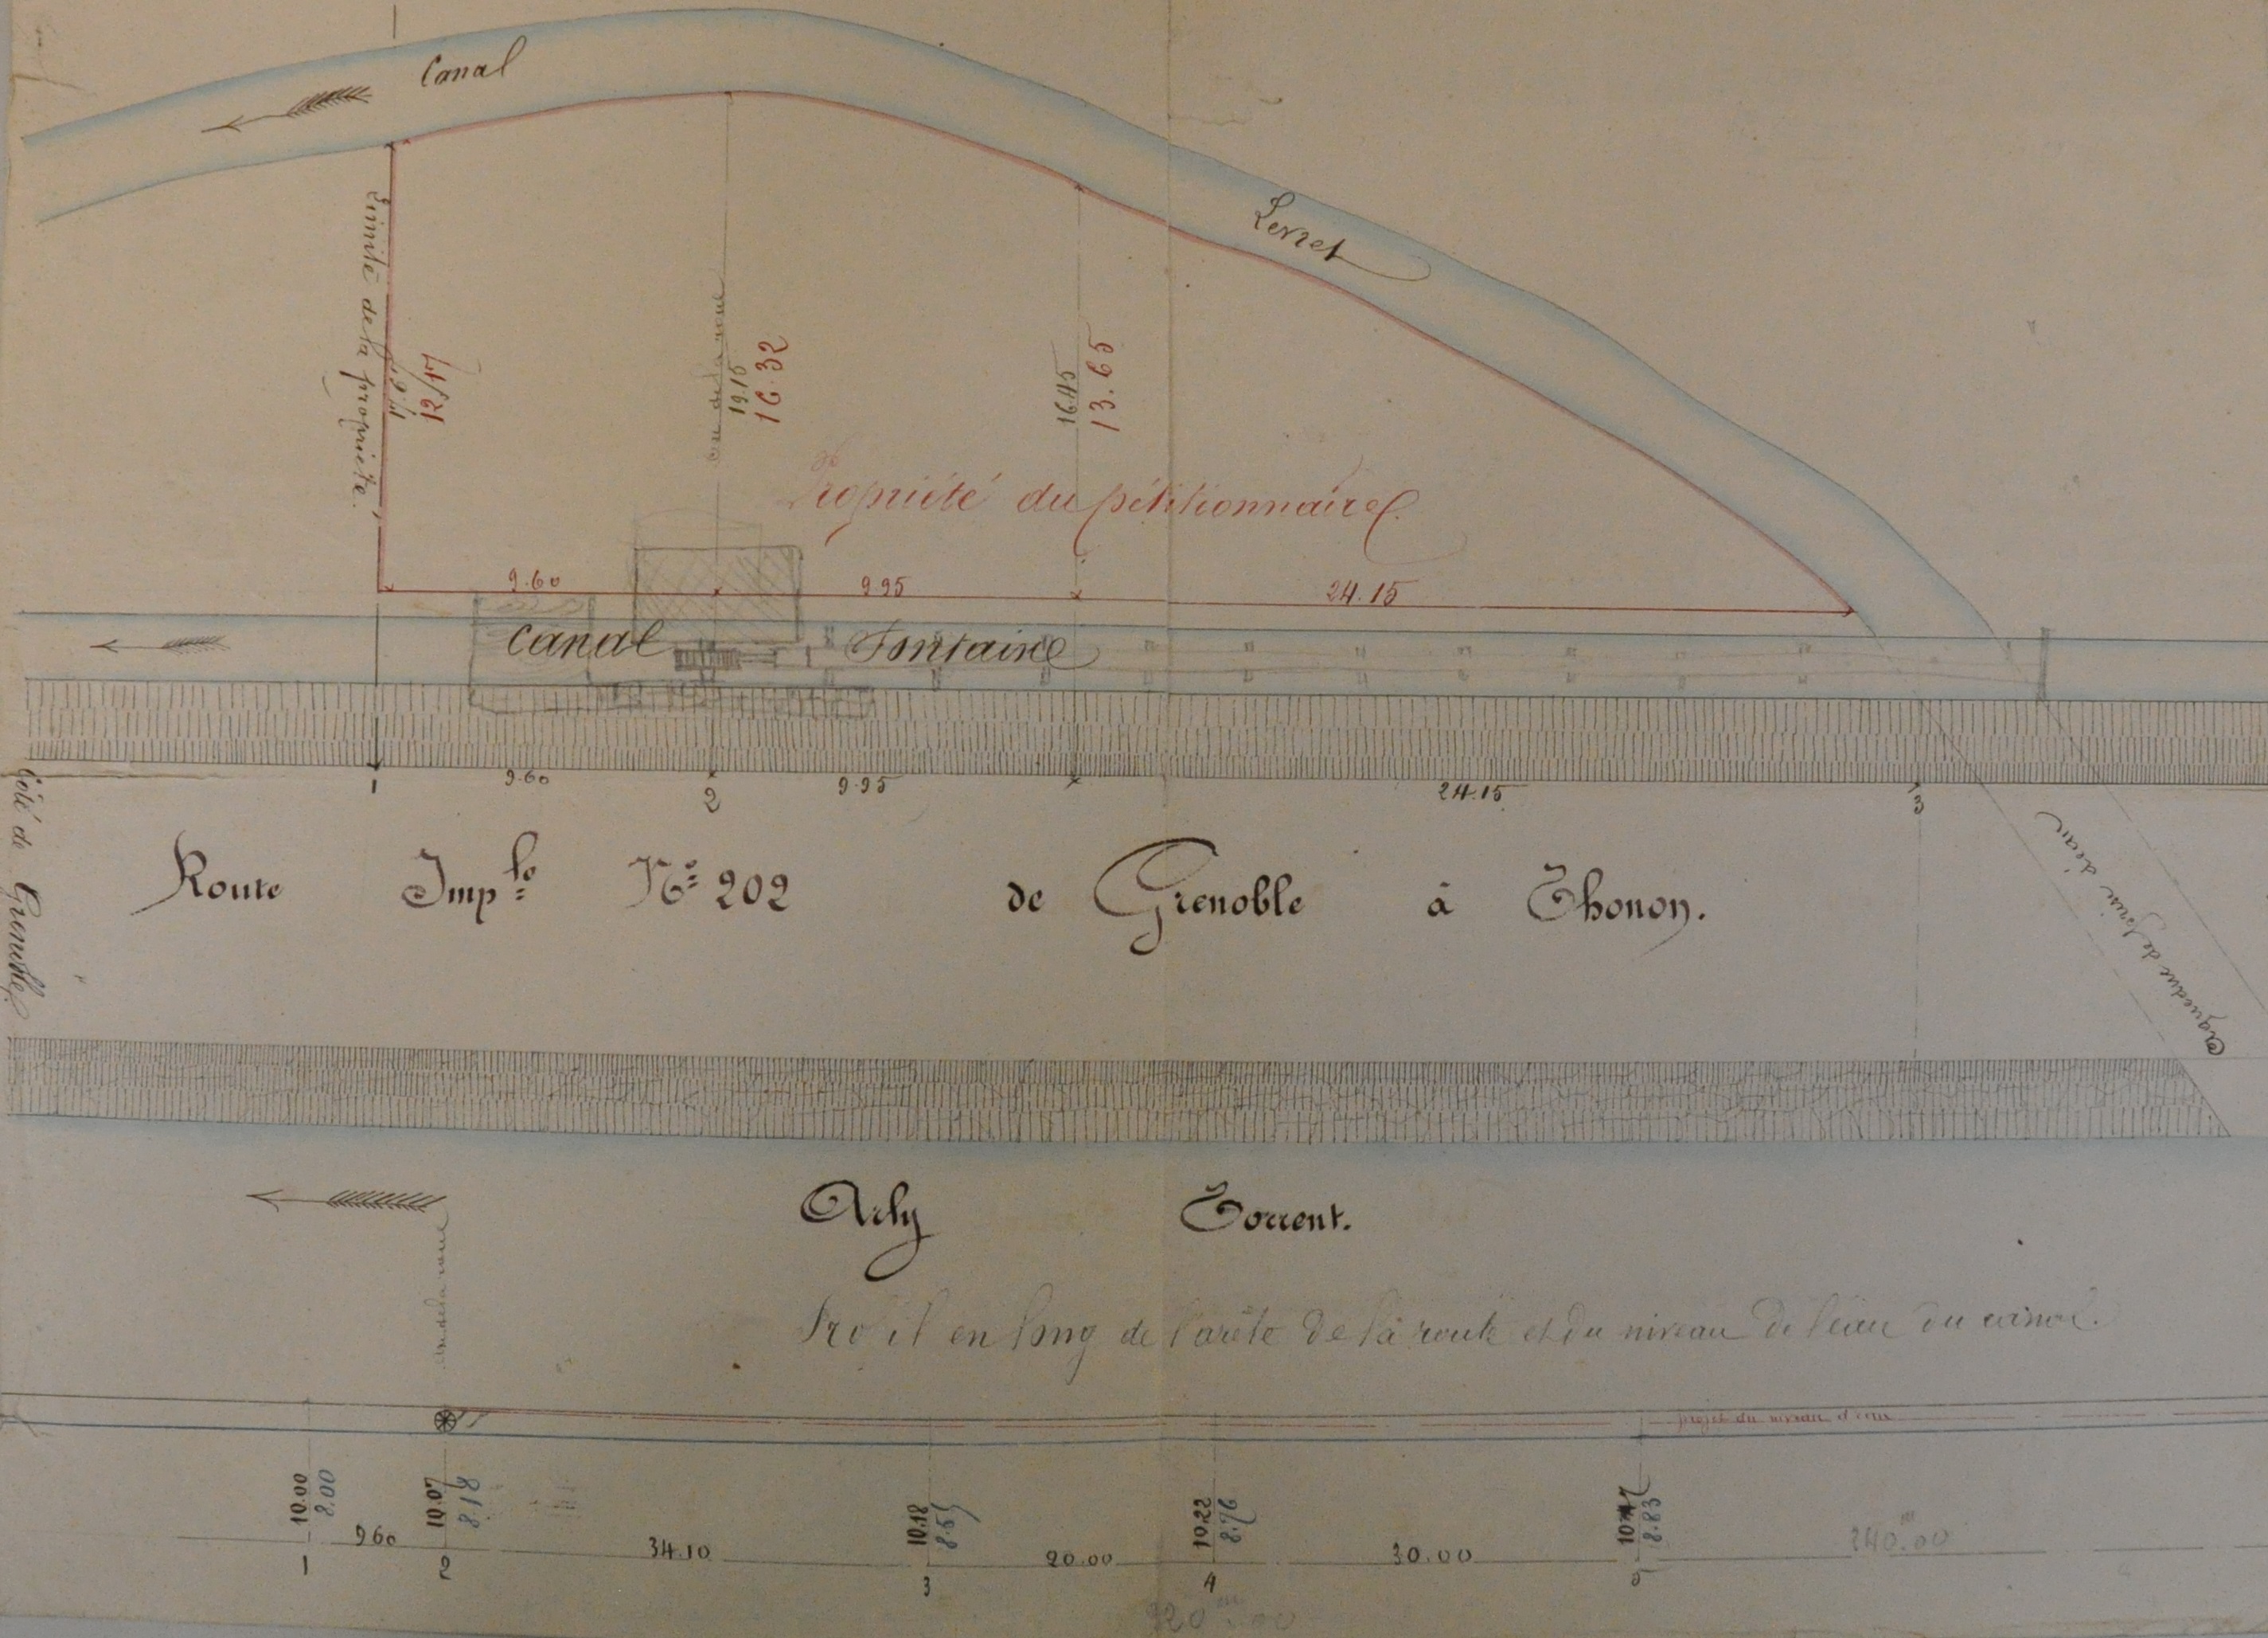 Canal
Lerret
Limite de la propriété.
12.47
axe de la roue
19.15
16.32
16.45
13.65
Propriété du pétitionnaire
9.60
9.95
24.15
Canal Fontaine
1
9.60
2
9.95
24.15
3
Côté de Grenoble
Route Imp.le N° 202 de Grenoble à Thonon.
aqueduc de prise d'eau
Arly Torrent.
axe de la roue
Profil en long de l'arête de la route et du niveau de l'eau du canal.
projet du niveau d'eau
10.00
8.00
10.07
8.18
10.18
10.22
8.76
8.83
9 60
34.10
20.00
30.00
240.m00
1
2
3
4
5